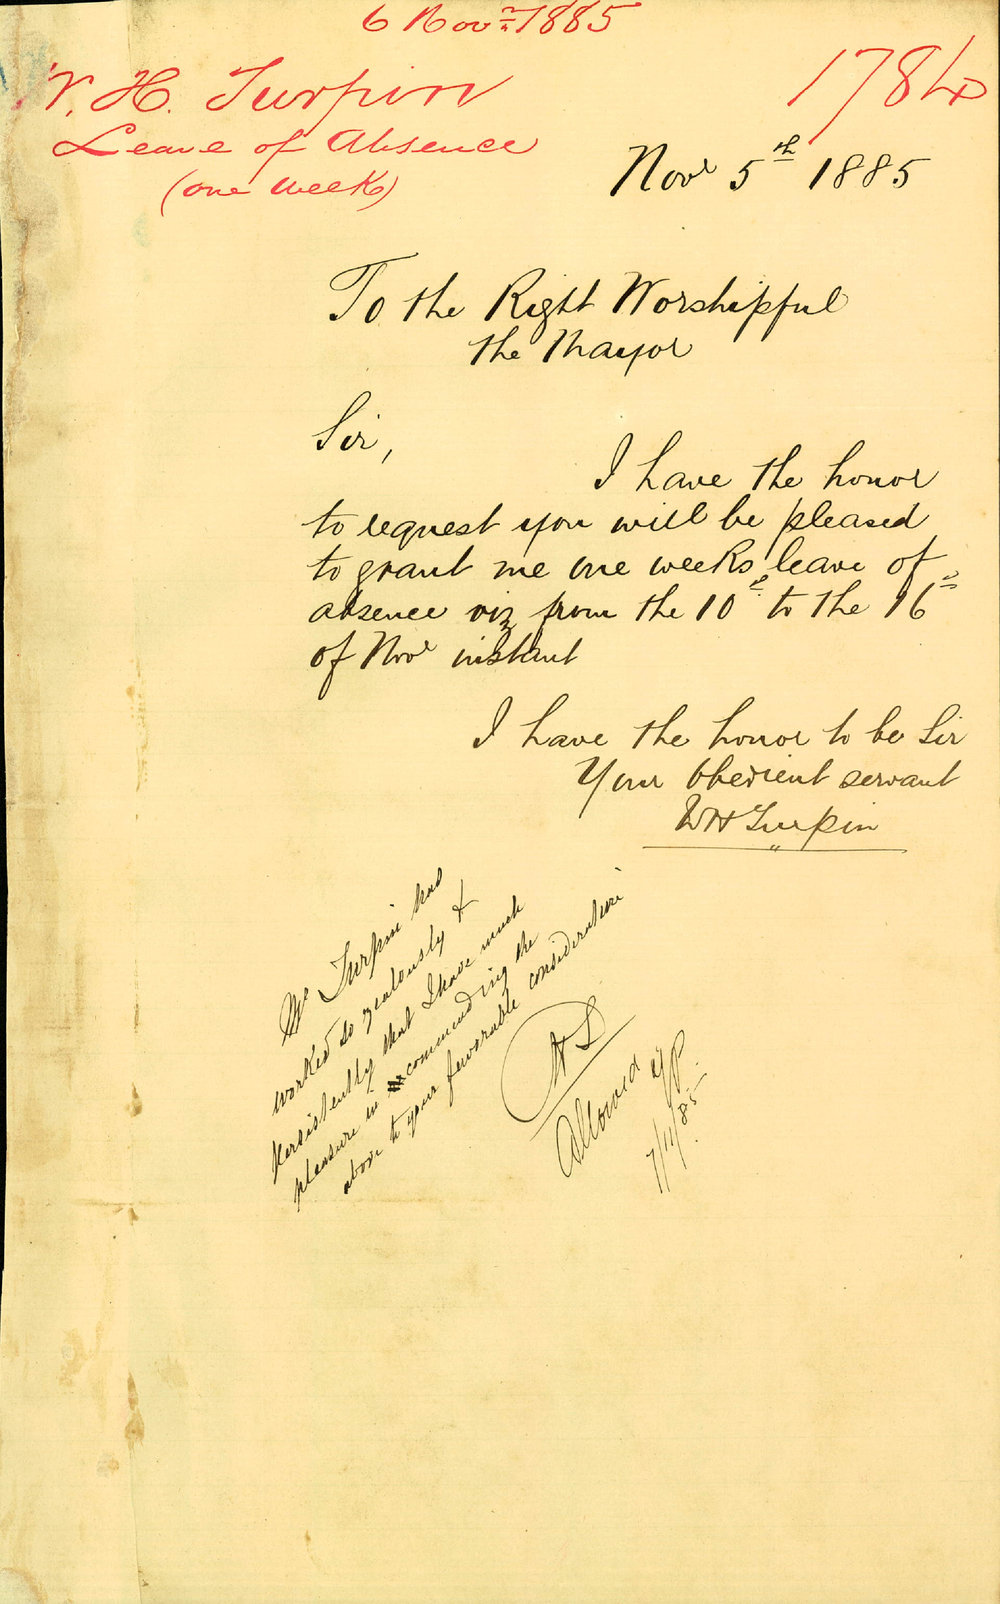 6 Novr 1885
W. H. Turpin
1784
Leave of Absence
(one week)
Novr 5th 1885
To the Right Worshipful
the Mayor
Sir,
I have the honor
to request you will be pleased
to grant me one weeks leave of
absence viz from the 10th to the 16th
of Novr instant
I have the honor to be Sir
Your Obedient servant
WH Turpin
Mr Turpin has
worked so zealously &
persistently that I have much
pleasure in recommending the
above to your favorable consideration
Allowed
7/11/85